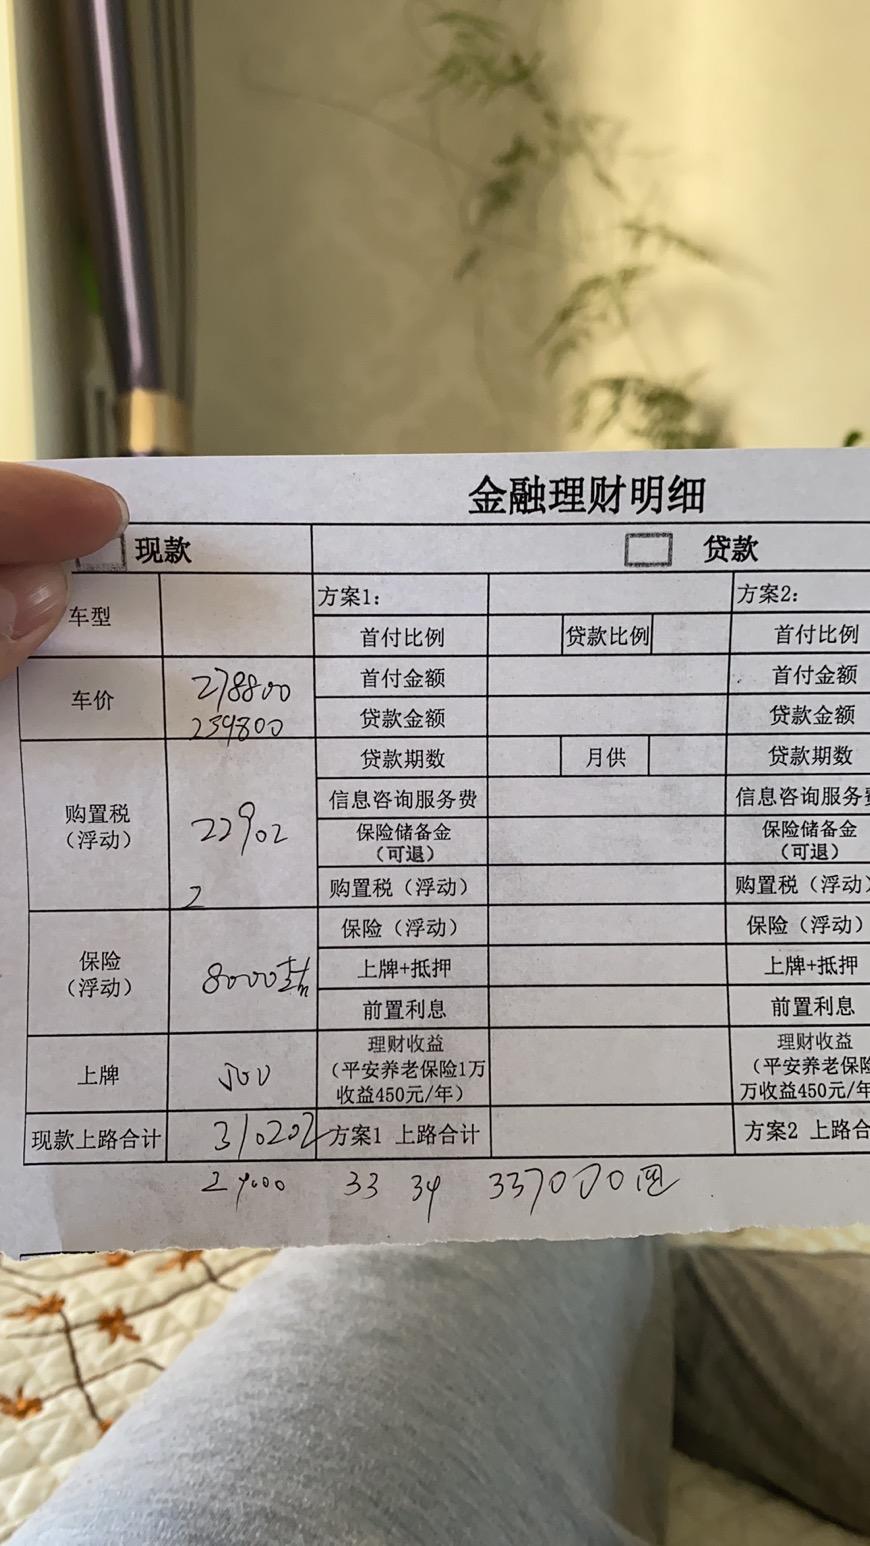 金融理财明细
现款 贷款
车型 方案1： 方案2：
首付比例 贷款比例 首付比例
车价 278800 首付金额 首付金额
239800 贷款金额 贷款金额
贷款期数 月供 贷款期数
购置税（浮动） 22902 信息咨询服务费 信息咨询服务费
保险储备金（可退） 保险储备金（可退）
2 购置税（浮动） 购置税（浮动）
保险（浮动） 8000 保险（浮动） 保险（浮动）
上牌+抵押 上牌+抵押
前置利息 前置利息
上牌 500 理财收益 理财收益
（平安养老保险1万 （平安养老保险
收益450元/年） 万收益450元/年
现款上路合计 310202 方案1 上路合计 方案2 上路合
33 34 337000